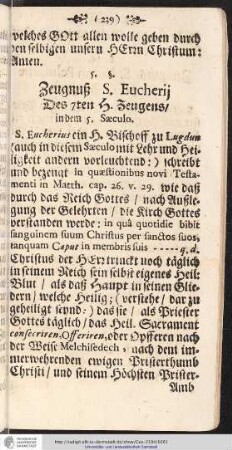 ( 229 )
welches GOtt allen wolle geben durch
den selbigen unsern HErrn Christum:
Amen.
5. §.
Zeugnuß S. Eucherij
Des 7ten H. Zeugens/
in dem 5. Sæculo.
S. Eucherius ein H. Bischoff zu Lugdun
(auch in diesem Sæculo mit Lehr und Hei-
ligkeit andern vorleuchtend:) schreibt
und bezeugt in quæstionibus novi Testa-
menti in Matth. cap. 26. v. 29. wie daß
durch das Reich Gottes / nach Außle-
gung der Gelehrten / die Kirch Gottes
verstanden werde; in quâ quotidie bibit
sanguinem suum Christus per sanctos suos,
tanquam Caput in membris suis - - - - - q. d.
Christus der HErr trinckt noch täglich
in seinem Reich sein selbst eigenes Heil:
Blut / als daß Haupt in seinen Glie-
dern / welche Heilig; (verstehe / dar zu
geheiligt seynd:) das sie / als Priester
Gottes täglich / das Heil. Sacrament
consecriren, Offeriren, oder Opfferen nach
der Weise Melchisedech, nach dem im-
merwehrenden ewigen Priesterthumb
Christi / und seinem Höchsten Priester-
Amb